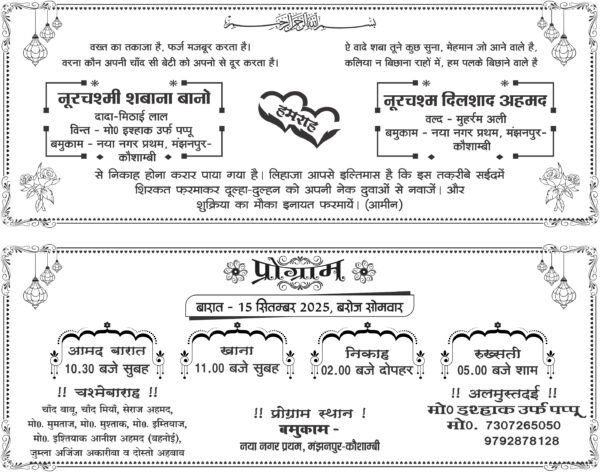 بسم الله الرحمن الرحيم
वख्त का तकाजा है, फर्ज मजबूर करता है।
वरना कौन अपनी चाँद सी बेटी को अपनो से दूर करता है।
ऐ वादे शबा तूने कुछ सुना, मेहमान जो आने वाले है,
कलिया न बिछाना राहों में, हम पलके बिछाने वाले है
नूरचश्मी शबाना बानो
दादा-मिठाई लाल
विन्त - मो0 इश्हाक उर्फ पप्पू
बमुकाम - नया नगर प्रथम, मंझनपुर-
कौशाम्बी
हमराह
नूरचश्म दिलशाद अहमद
वल्द - मुहर्रम अली
बमुकाम - नया नगर प्रथम, मंझनपुर-
कौशाम्बी
से निकाह होना करार पाया गया है। लिहाजा आपसे इल्तिमास है कि इस तकरीबे सईदमें
शिरकत फ़रमाकर दूल्हा-दुल्हन को अपनी नेक दुवाओं से नवाजें। और
शुक्रिया का मौका इनायत फरमायें। (आमीन)
प्रोग्राम
बारात - 15 सितम्बर 2025, बरोज सोमवार
आमद बारात
10.30 बजे सुबह
खाना
11.00 बजे सुबह
निकाह
02.00 बजे दोपहर
रुखसती
05.00 बजे शाम
!! चश्मेबाराह !!
चाँद बाबू, चाँद मियाँ, सेराज अहमद,
मो0 मुमताज, मो0 मुश्ताक, मो0 इम्तियाज,
मो0 इश्तियाक आनीश अहमद (बहनोई),
जुम्ला अजिंजा अकारीबा व दोस्तो अहबाव
!! प्रोग्राम स्थान !!
बमुकाम-
नया नगर प्रथम, मंझनपुर-कौशाम्बी
!! अलमुस्तदई !!
मो0 इश्हाक उर्फ पप्पू
मो0. 7307265050
9792878128